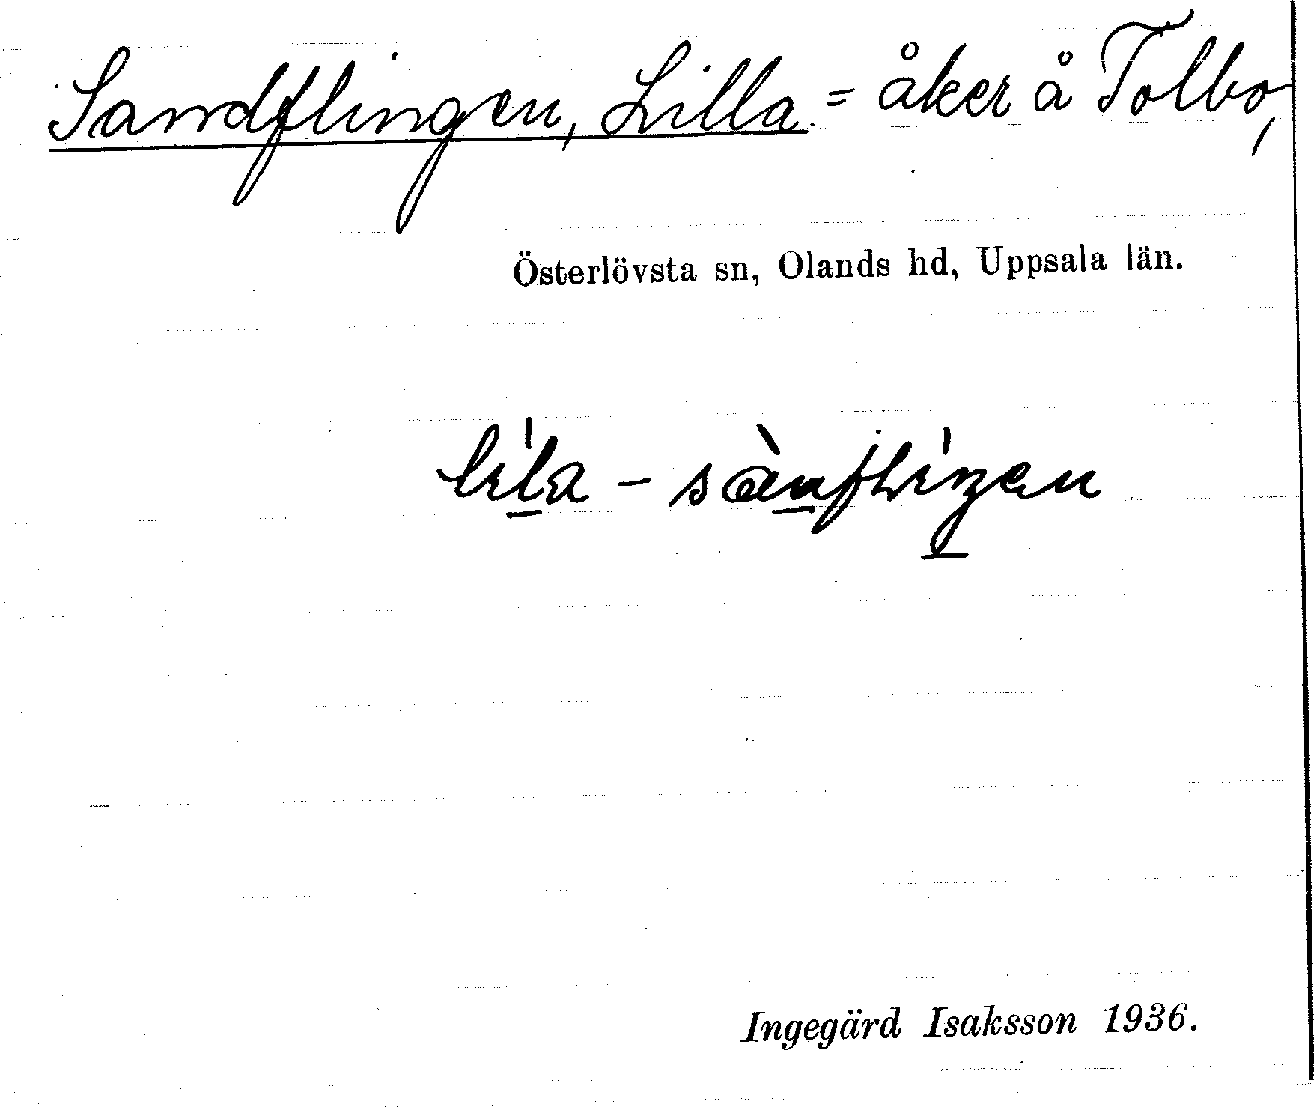 Sandflingen, Lilla = åker å Tolbo,
Österlövsta sn, Olands hd, Uppsala län.
Ingegärd Isaksson 1936.